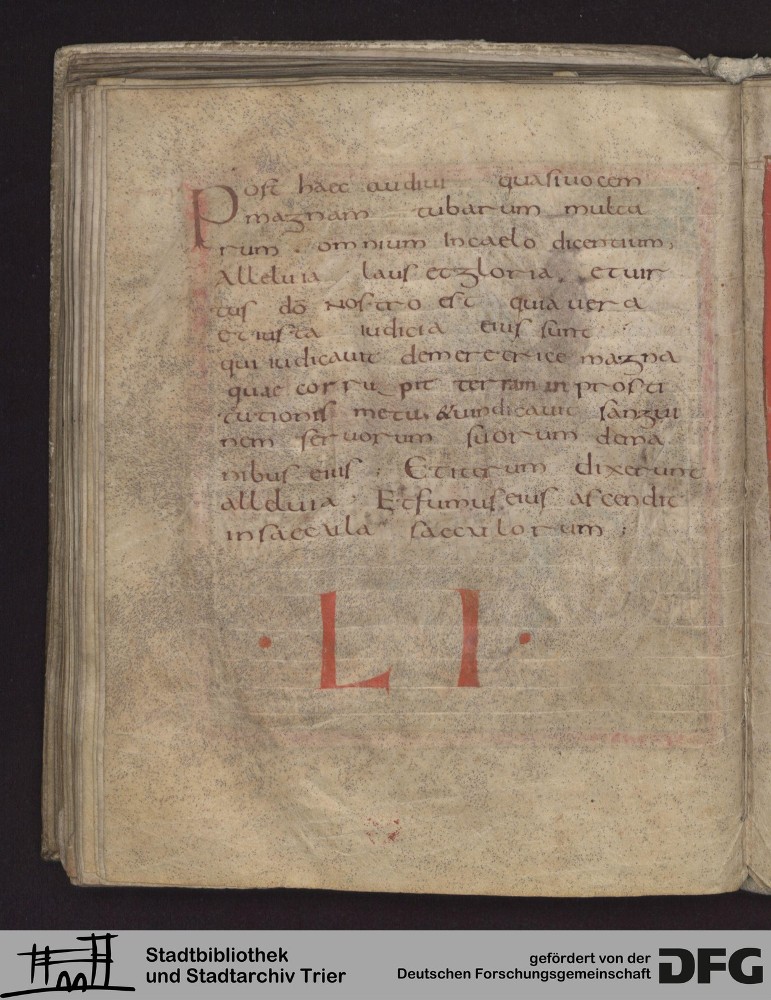 Post haec audiui quasi uocem
magnam tubarum multa
rum . omnium in caelo dicentium,
alleluia laus et gloria . et uir
tus dō nostro est quia uera
et iusta iudicia eius sunt :
qui iudicauit de meretrice magna
quae corrupit terram in prosti
tutionis metu, & uindicauit sangui
nem seruorum suorum de ma
nibus eius ; Et iterum dixerunt
alleluia ; Et fumus eius ascendit
in saecula saeculorum ;
· L I ·
Stadtbibliothek
und Stadtarchiv Trier
gefördert von der
Deutschen Forschungsgemeinschaft
DFG